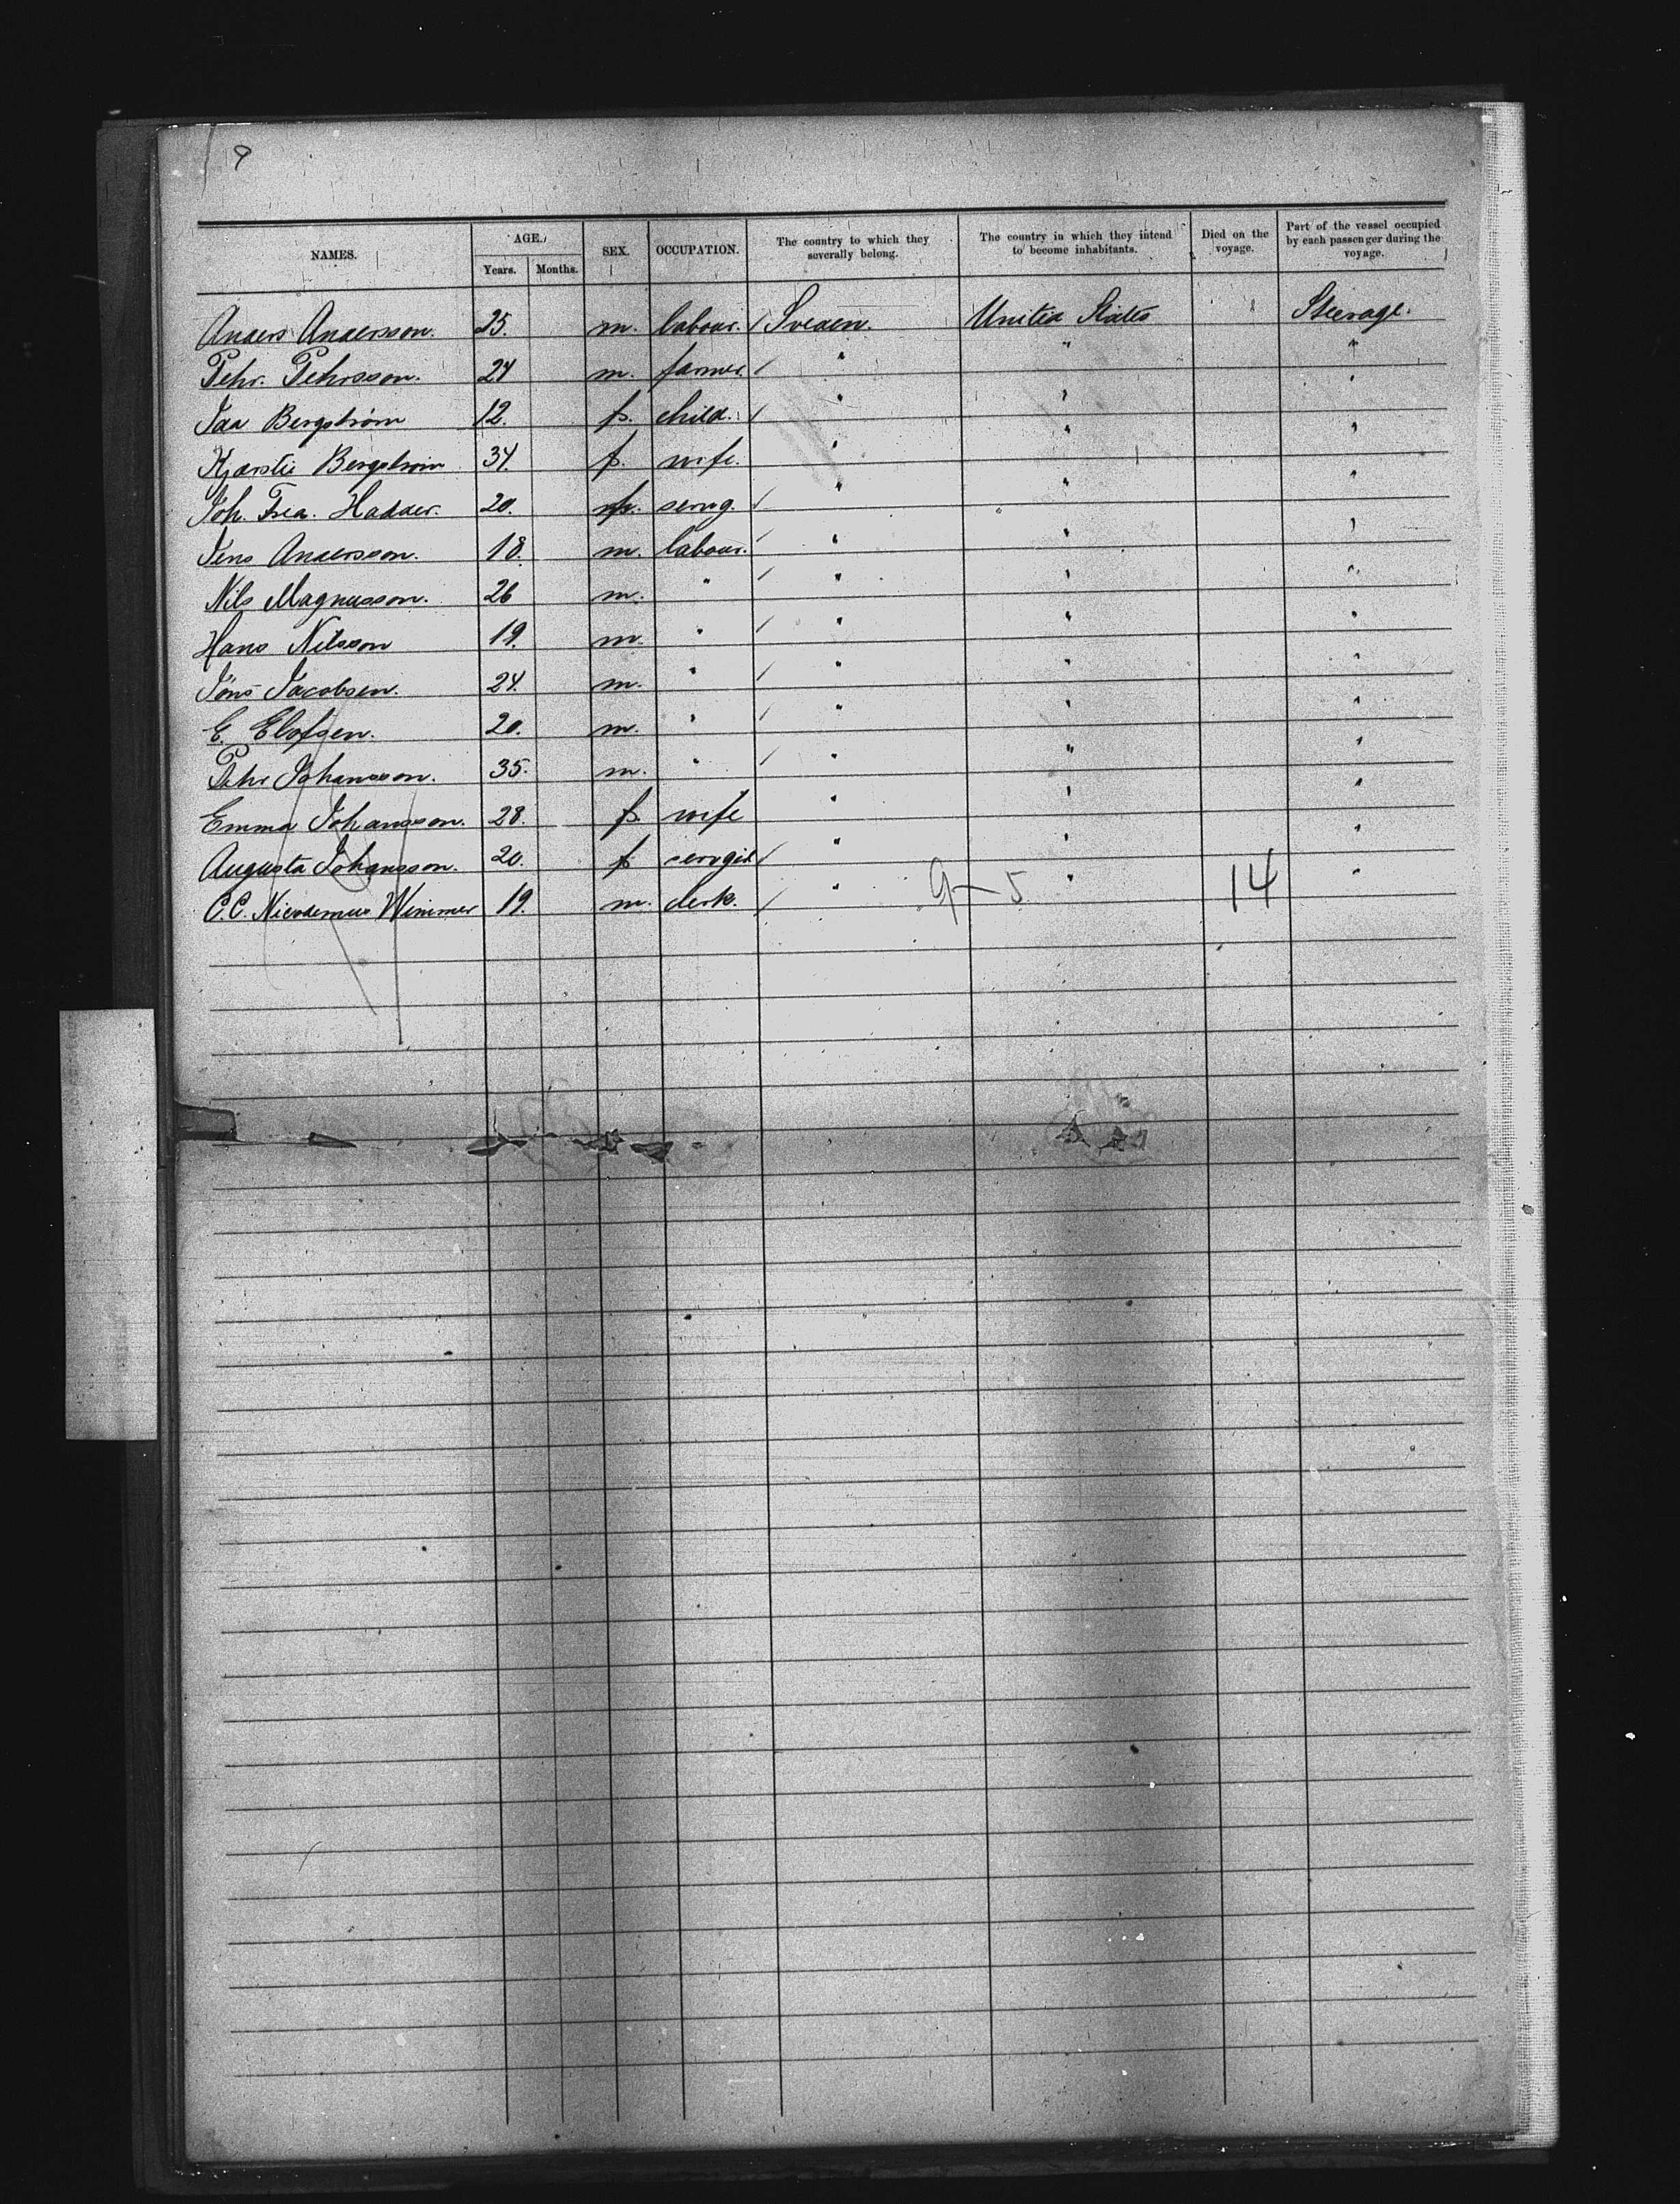 9
NAMES. AGE. SEX. OCCUPATION. The country to which they severally belong. The country in which they intend to become inhabitants. Died on the voyage. Part of the vessel occupied by each passenger during the voyage.
Years. Months.
Anders Andersson. 25. m. labour. / Sveden. United States Steerage.
Pehr. Pehrsson. 24 m. farmer. / " " "
Ida Bergström 12. f. child. / " " "
Kjerstie Bergström 34. f. wife. " " "
Joh. Fred. Hadder. 20. servg. / " " "
Jens Andersson. 18. m. labour. / " " "
Nils Magnusson. 26 m. " / " " "
Hans Nilsson 19. m. " / " " "
Jöns Jacobsen. 24. m. " / " " "
E. Elofsen. 20. m. " / " " "
Pehr Johansson. 35. m. " / " " "
Emma Johansson. 28. f. wife " " "
Augusta Johansson. 20. f. servgirl / " " "
C.C. Nicodemus Wimmer 19. m. clerk. / " 9-5 " 14 "